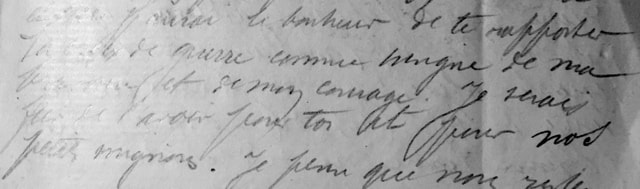 j'aurai le bonheur de te rapporter
de guerre comme insigne de ma
et de mon courage. Je serais
fier de l'avoir pour toi et pour nos
petits mignons. Je pense que nous